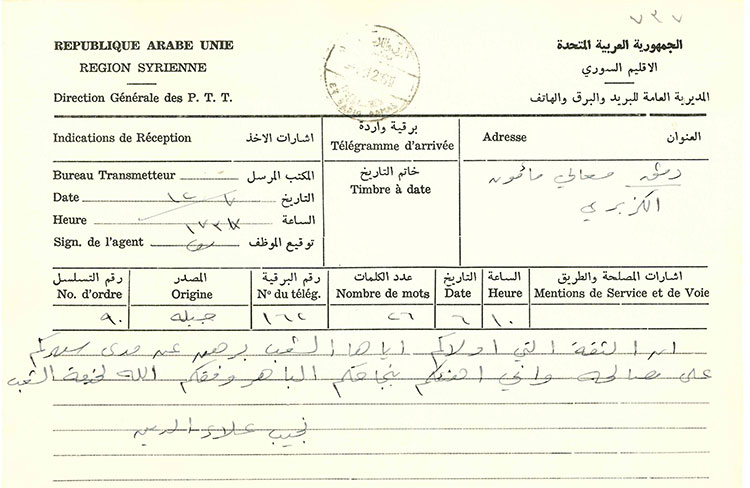 ٧٣٧
REPUBLIQUE ARABE UNIE
REGION SYRIENNE
Direction Générale des P. T. T.
الجمهورية العربية المتحدة
الاقليم السوري
المديرية العامة للبريد والبرق والهاتف
Indications de Réception اشارات الاخذ
Bureau Transmetteur المكتب المرسل
Date التاريخ
Heure الساعة
Sign. de l'agent توقيع الموظف
برقية واردة
Télégramme d'arrivée
خاتم التاريخ
Timbre à date
Adresse العنوان
دمشق معالي مأمون
الكزبري
رقم التسلسل
No. d'ordre
٩٠
المصدر
Origine
جبله
رقم البرقية
Nº du télég.
١٦٢
عدد الكلمات
Nombre de mots
٢٦
التاريخ
Date
٦
الساعة
Heure
١٠
اشارات المصلحة والطريق
Mentions de Service et de Voie
ان الثقة التي اولاكم اياها الشعب برهن عن مدى سهركم
على مصالحه واني اهنئكم بنجاحكم الباهر وفقكم الله لخدمة الشعب
نجيب علاء الدين